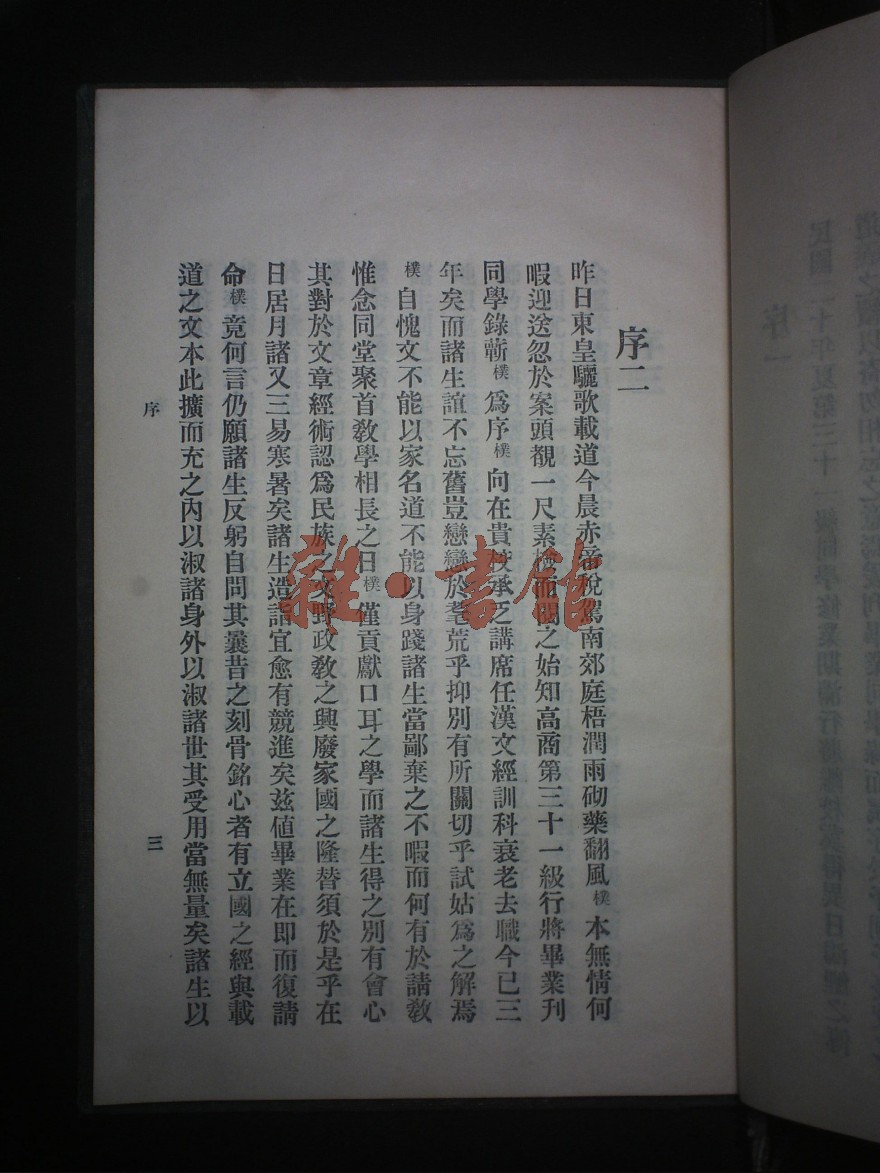 序二
昨日東皇驪歌載道今晨赤帝稅駕南郊庭梧潤雨砌藥翻風樸本無情何
暇迎送忽於案頭覩一尺素檢而閱之始知高商第三十一級行將畢業刊
同學錄蘄樸爲序樸向在貴校承乏講席任漢文經訓科衰老去職今已三
年矣而諸生誼不忘舊豈戀戀於耄荒乎抑別有所關切乎試姑爲之解焉
樸自愧文不能以家名道不能以身踐諸生當鄙棄之不暇而何有於請敎
惟念同堂聚首敎學相長之日樸僅貢獻口耳之學而諸生得之別有會心
其對於文章經術認爲民族之文野政敎之興廢家國之隆替須於是乎在
日居月諸又三易寒暑矣諸生造詣宜愈有競進矣茲値畢業在即而復請
命樸竟何言仍願諸生反躬自問其曩昔之刻骨銘心者有立國之經與載
道之文本此擴而充之內以淑諸身外以淑諸世其受用當無量矣諸生以
序
三
雜·書館